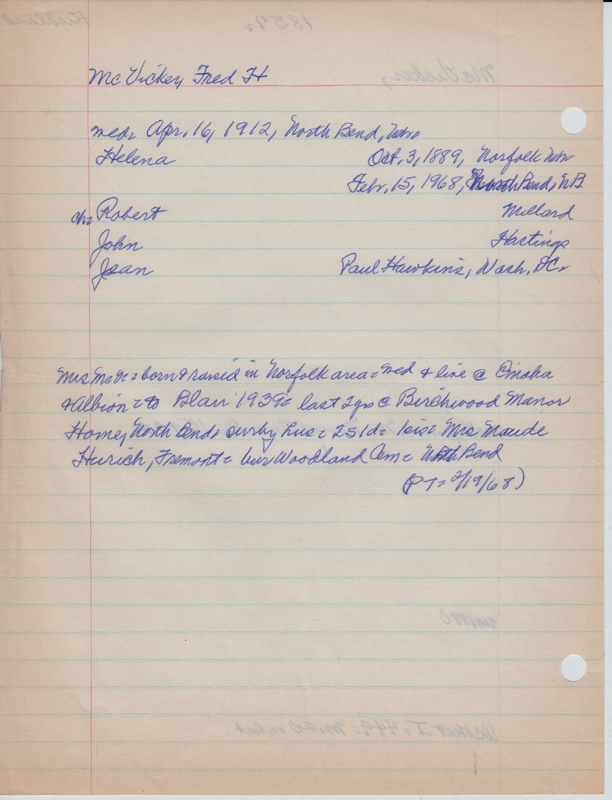 McVickey, Fred H
med= Apr. 16, 1912, North Bend,
Helena Oct. 3, 1889, Norfolk
Febr. 15, 1968, North Bend, NB
ch= Robert Millard
John Hastings
Jean Paul Hawkins, Wash, DC=
Mrs McV= born & raised in Norfolk area= wed & live @ Omaha
& Albion= to Blair 1939= last 2 yrs @ Birchwood Manor
Home, North Bend= surv by hus= 2s 1d= 1sis= Mrs Maude
Heirich, Fremont= bur Woodland Cem= North Bend
(PT= 2/19/68)
1857=